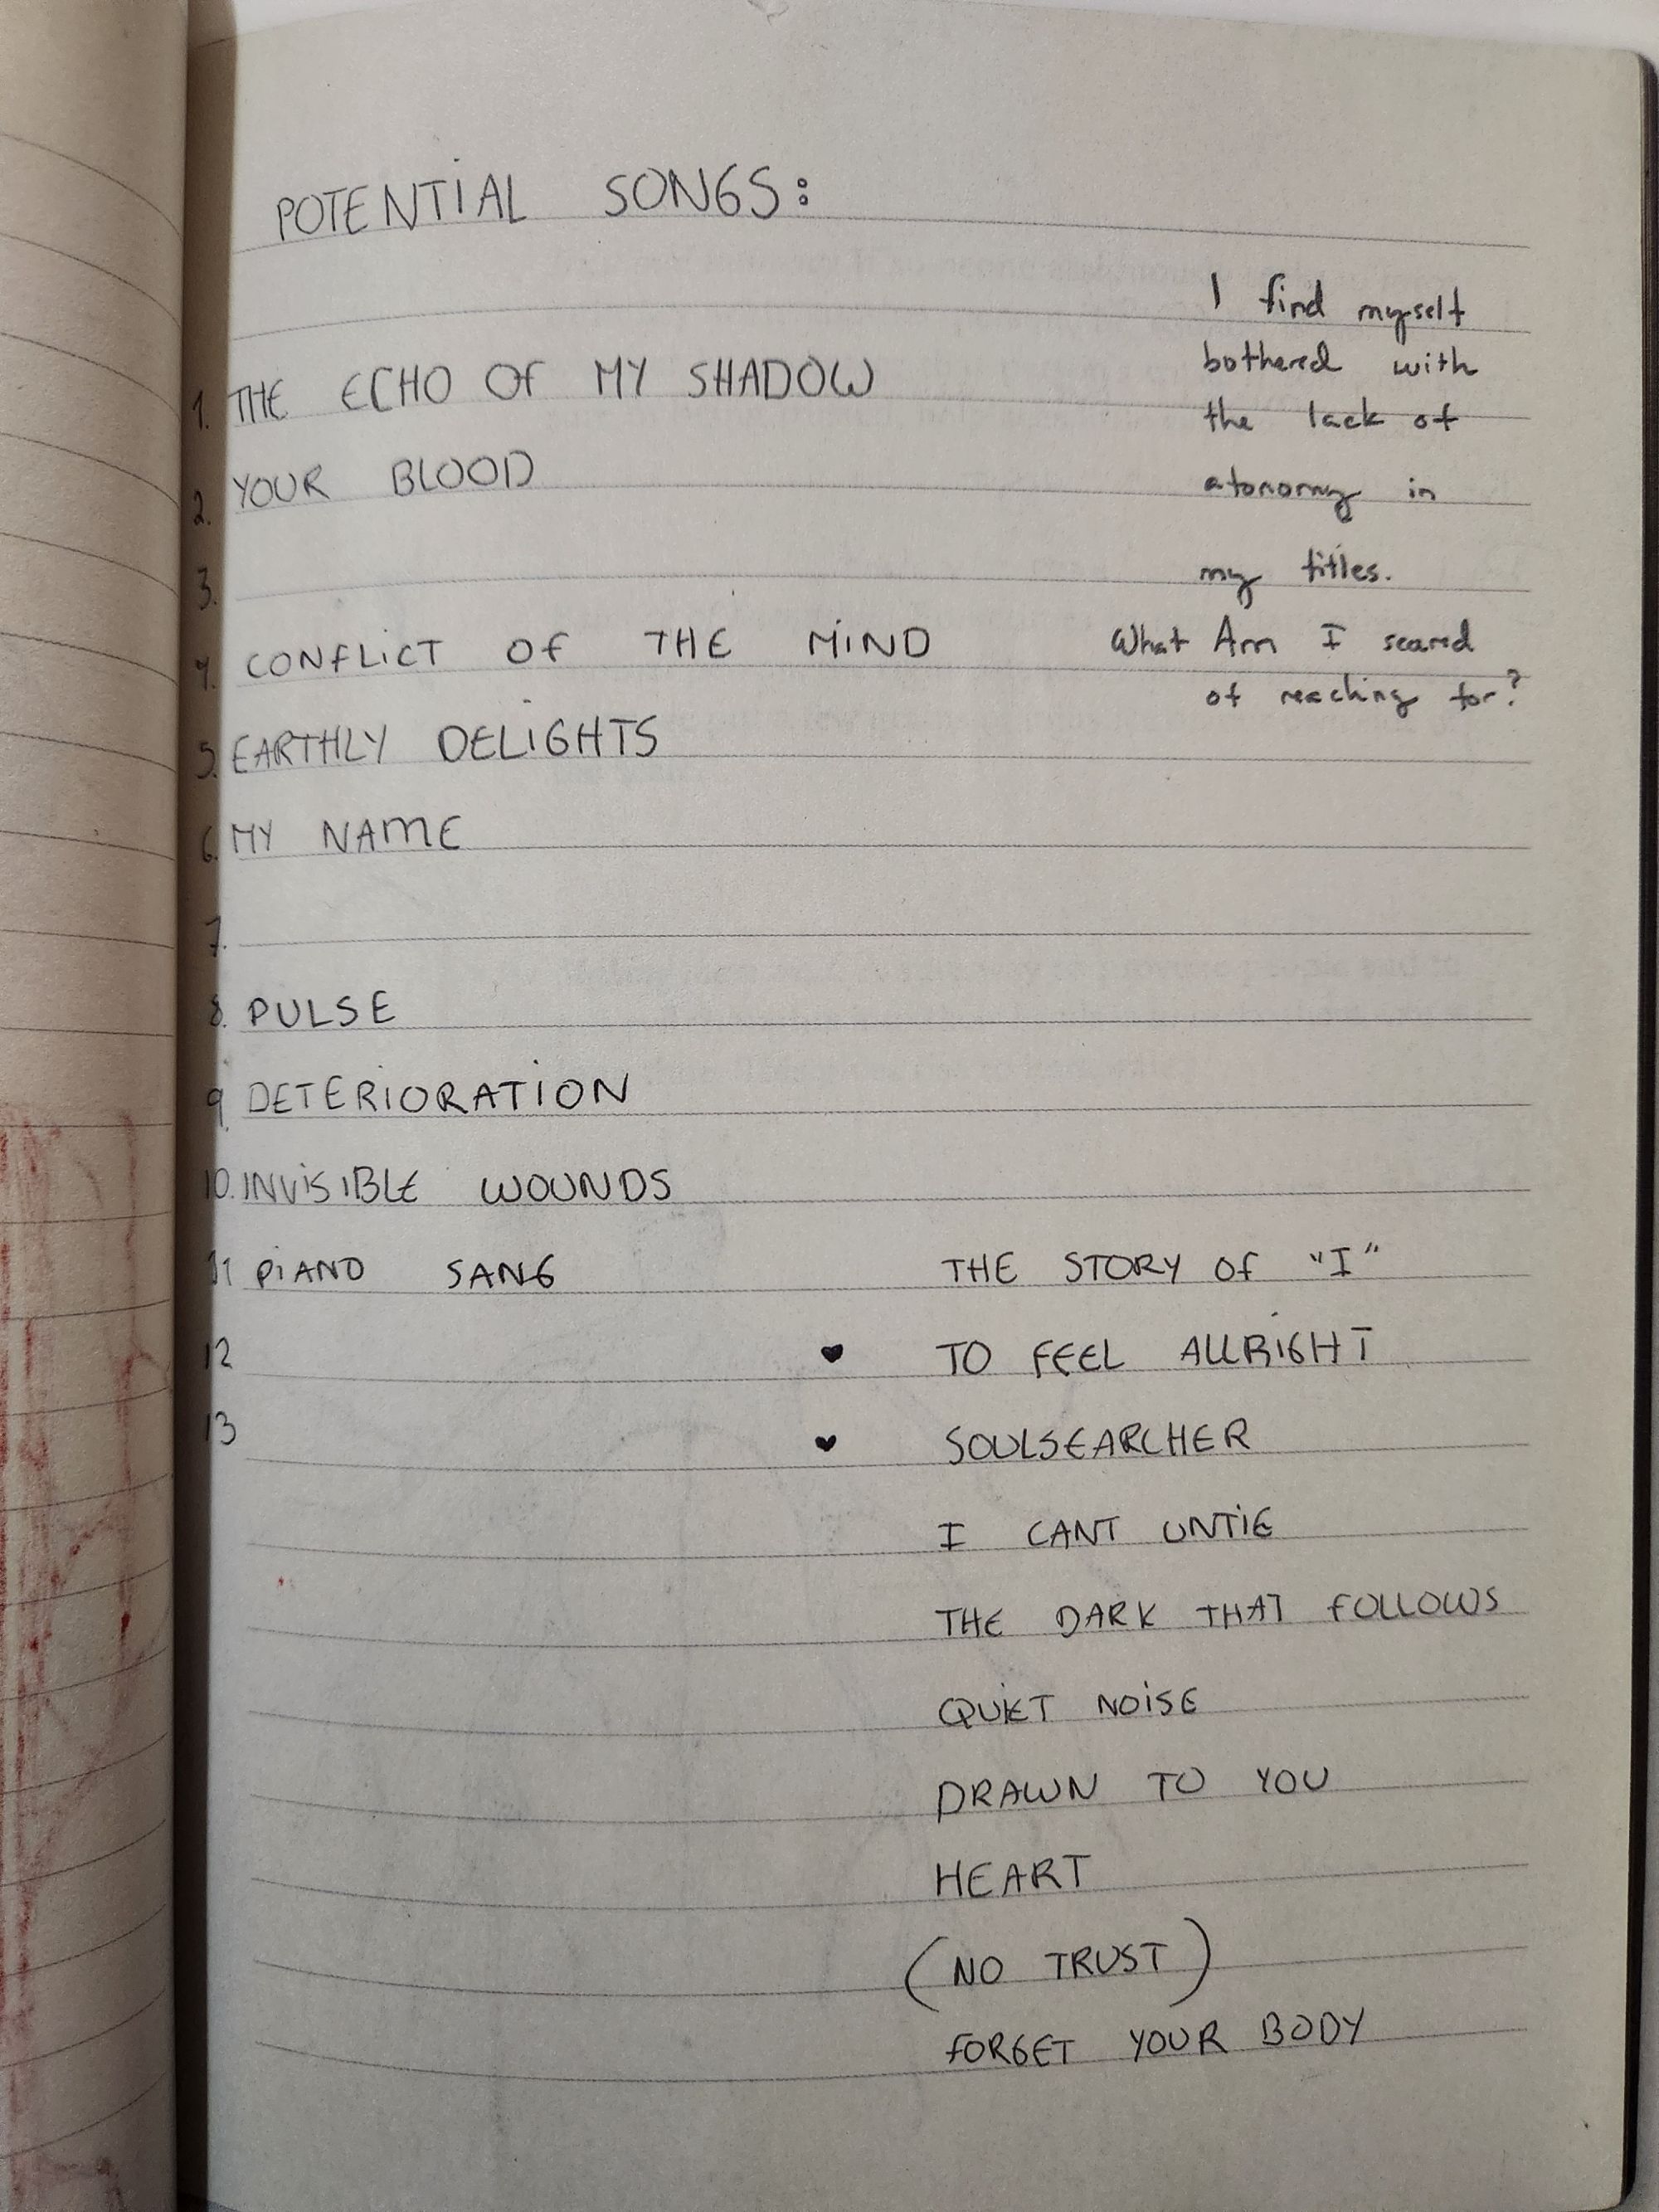 POTENTIAL SONGS:
I find myself
bothered with
the lack of
atonomy in
my titles.
What Am I scared
of reaching for?
1. THE ECHO OF MY SHADOW
2. YOUR BLOOD
3.
4. CONFLICT OF THE MIND
5. EARTHLY DELIGHTS
6. MY NAME
7.
8. PULSE
9. DETERIORATION
10. INVISIBLE WOUNDS
11 PIANO SANG
12
13
THE STORY OF "I"
♥ TO FEEL ALLRIGHT
♥ SOULSEARCHER
I CANT UNTIE
THE DARK THAT FOLLOWS
QUIET NOISE
DRAWN TO YOU
HEART
(NO TRUST)
FORGET YOUR BODY